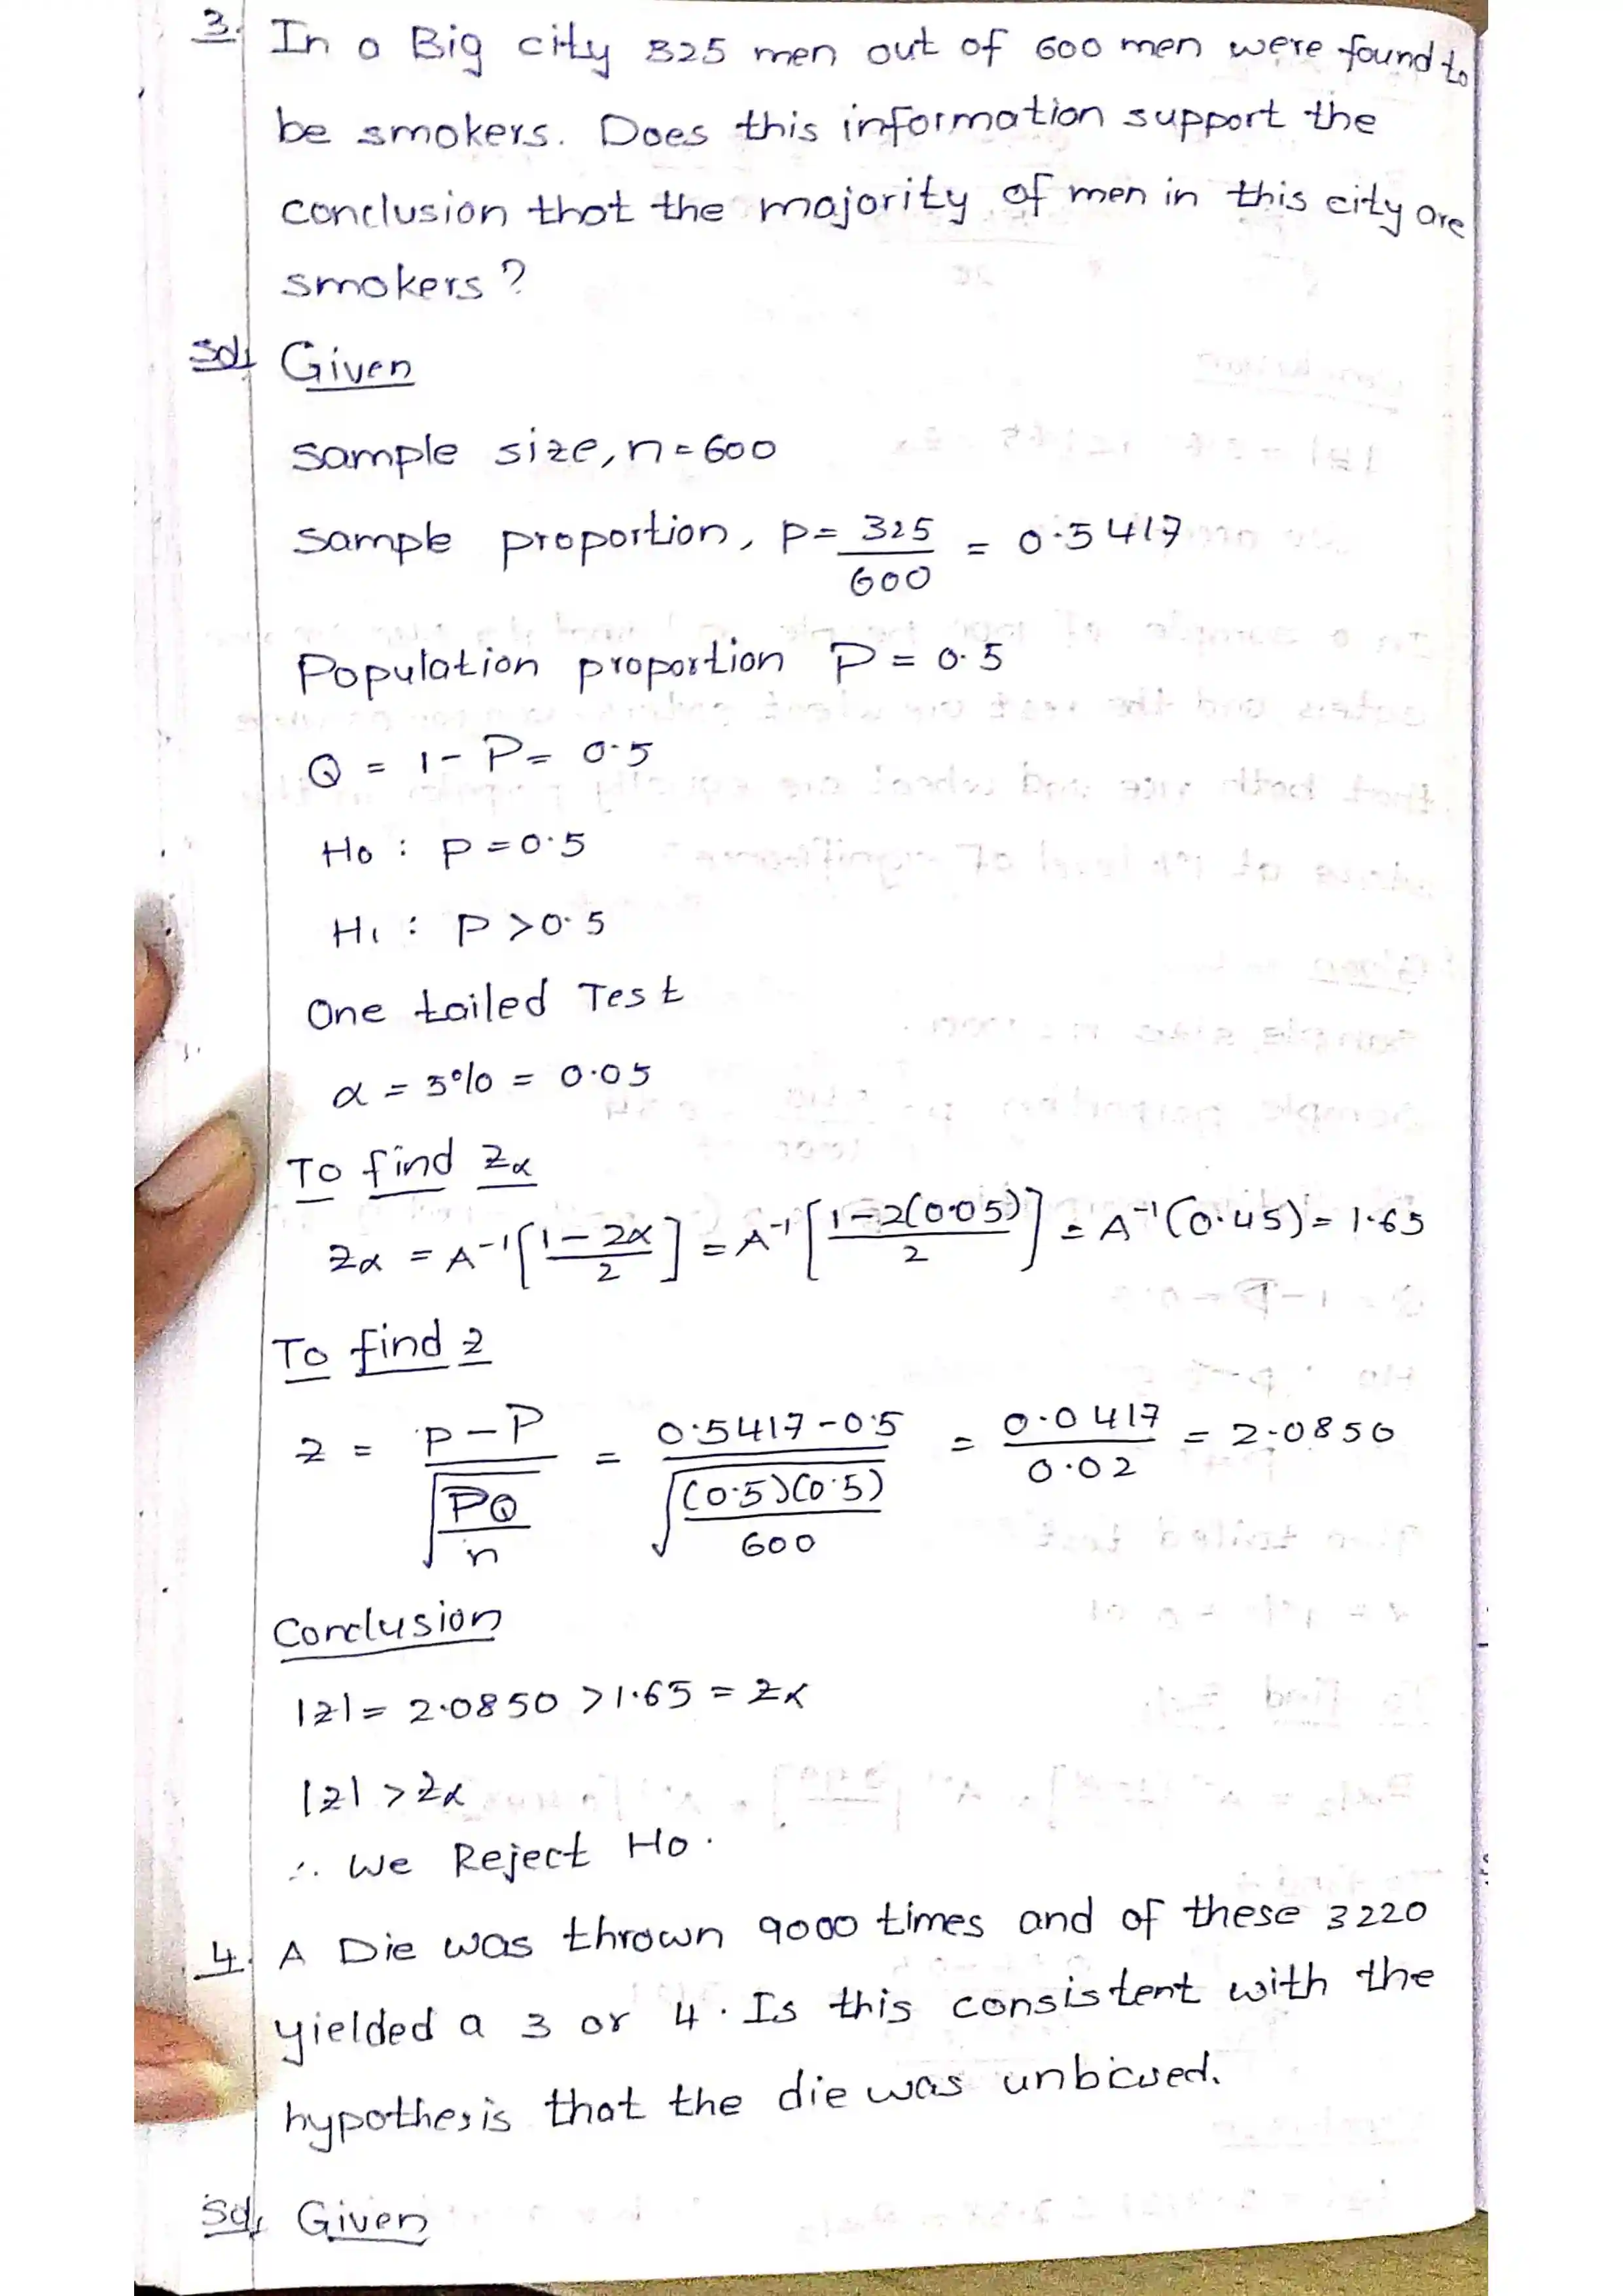 3. In a Big city 325 men out of 600 men were found to
be smokers. Does this information support the
conclusion that the majority of men in this city are
smokers?
Sol, Given
sample size, n = 600
sample proportion, p = 325/600 = 0.5417
Population proportion P = 0.5
Q = 1 - P = 0.5
H0 : p = 0.5
H1 : P > 0.5
One tailed Test
α = 5% = 0.05
To find zα
zα = A⁻¹[(1-2α)/2] = A⁻¹[(1-2(0.05))/2] = A⁻¹(0.45) = 1.65
To find z
z = (p - P)/√(PQ/n) = (0.5417 - 0.5)/√((0.5)(0.5)/600) = 0.0417/0.02 = 2.0850
Conclusion
|z| = 2.0850 > 1.65 = zα
|z| > zα
∴ We Reject H0.
4. A Die was thrown 9000 times and of these 3220
yielded a 3 or 4. Is this consistent with the
hypothesis that the die was unbiased.
Sol, Given